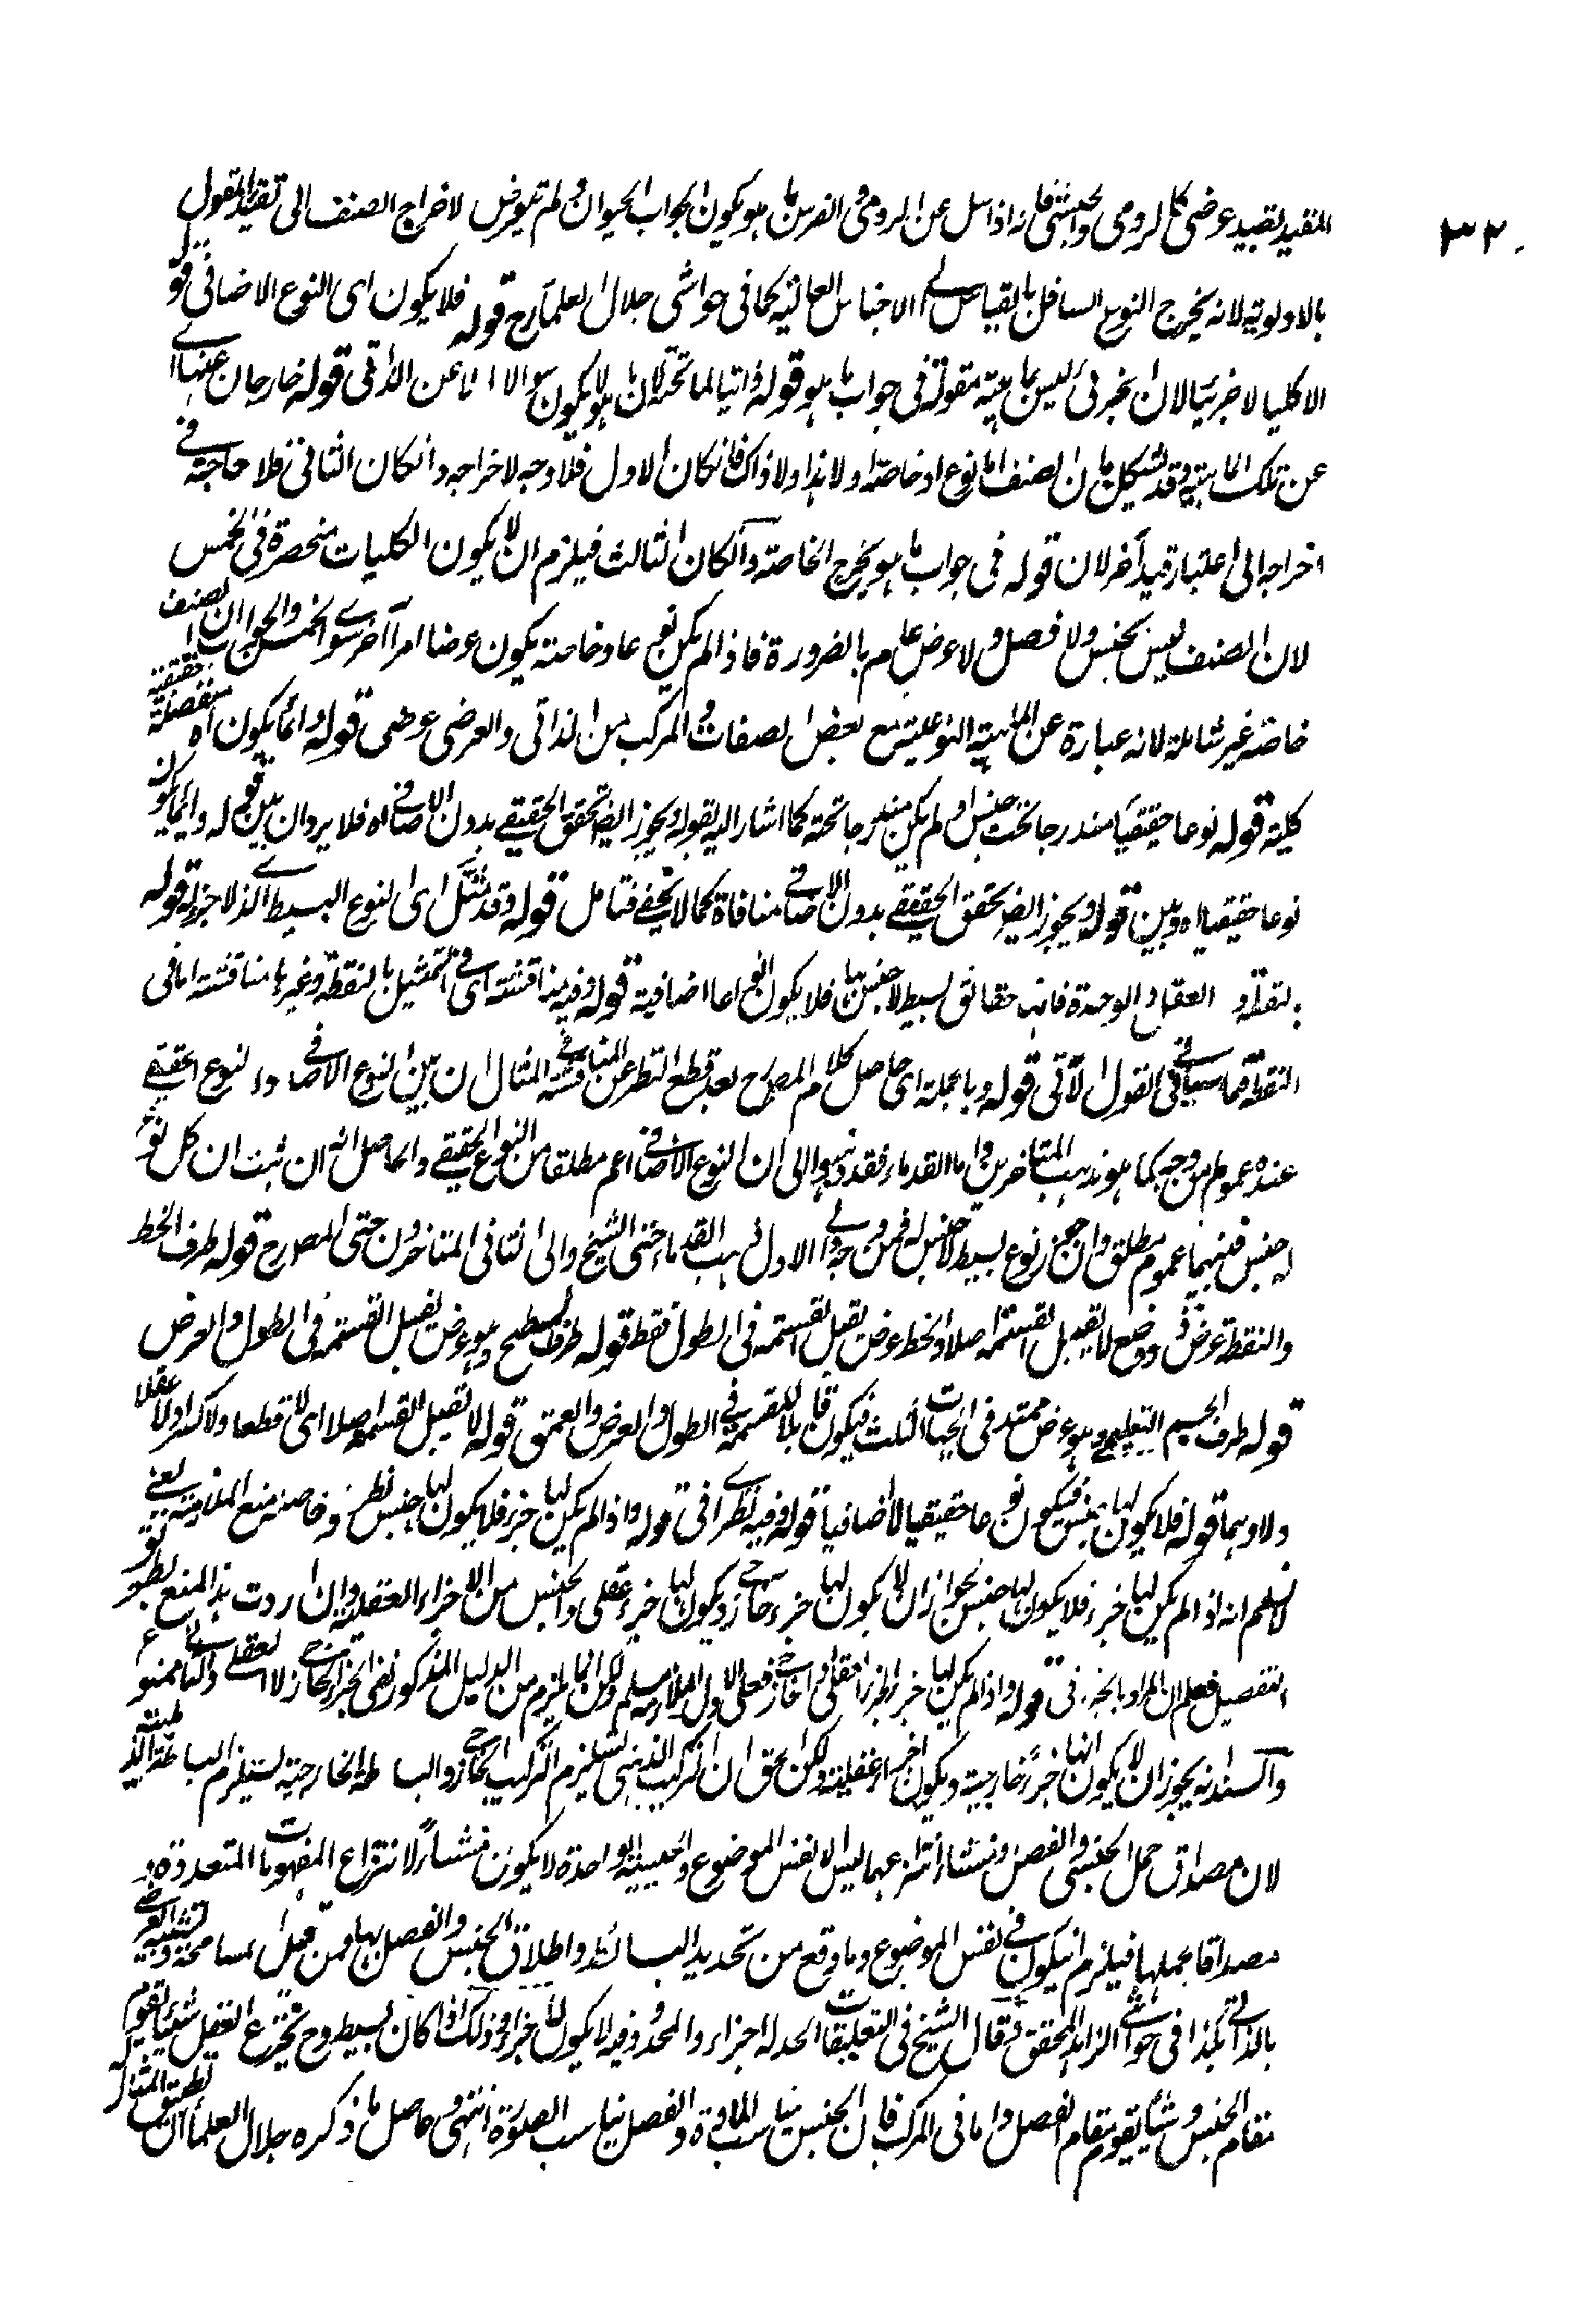 ٣٢٠
المقيد بقيد عرضي كالرومي والحبشي فانه اذا سل عن الرومي والفرس بما هو يكون الجواب الحيوان ولم يتعرض لاخراج الصنف الى تقييد القول
بالاولوية لانه يخرج النوع السافل بالقياس الى الاجناس العالية كما في حواشي جلال العلماء رح قوله فلا يكون اى النوع الاضافي قو
الا كليا لا جزئيا لان الجزئي ليس بماهية مقولة في جواب ما هو قوله ذاتيا لما تحته لان ما هو لا يكون سوالا الا عن الذاتي قوله خارجان عنها اى
عن تلك الماهية وقد يشكل بان الصنف اما نوع او خاصة او لا هذا ولا ذاك فان كان الاول فلا وجه لاخراجه وان كان الثاني فلا حاجة في
اخراجه الى اعتبار قيد آخر لان قوله في جواب ما هو يخرج الخاصة وان كان الثالث فيلزم ان لا يكون الكليات منحصرة في الخمس
لان الصنف ليس بجنس ولا فصل ولا عرض عام بالضرورة فاذا لم يكن نوعا وخاصة يكون عرضا امرا آخر سوى الخمس والجواب ان الصنف
خاصة غير شاملة لانه عبارة عن الماهية النوعية مع بعض الصفات والمركب من الذاتي والعرضي عرضي قوله وانما يكون اه منفصلة حقيقية
كلية قوله نوعا حقيقيا مندرجا تحت جنس او لم يكن مندرجا تحته كما اشار اليه بقوله ويجوز ايضا تحقق الحقيقي بدون الاضافي اه فلا يرد ان بين قوله وانما يكون
نوعا حقيقيا اه وبين قوله ويجوز ايضا تحقق الحقيقي بدون الاضافي منافاة كما لا يخفى فتامل قوله وقد مثل اى النوع البسيط الذى لا جزء له قوله
بالنقطة والعقل والوحدة فانها حقائق بسيطة لا جنس لها فلا يكون انواعا اضافية قوله وفيه مناقشة اى في التمثيل بالنقطة وغيرها مناقشة اما في
النقطة فما سياتي في القول الآتي قوله وبالجملة اى حاصل كلام المص رح بعد قطع النظر عن المناقشة في المثال ان بين النوع الاضافي والنوع الحقيقي
عنده عموم من وجه كما هو مذهب المتاخرين واما القدماء فقد ذهبوا الى ان النوع الاضافي اعم مطلقا من النوع الحقيقي والحاصل انه ان ثبت ان كل نوع
له جنس فبينهما عموم مطلق وان جوز نوع بسيط لا جنس له فمن وجه والى الاول ذهب القدماء حتى الشيخ والى الثاني المتاخرون حتى المص رح قوله طرف الخط
والنقطة عرض ذو وضع لا يقبل القسمة اصلا والخط عرض يقبل القسمة في الطول فقط قوله طرف السطح وهو عرض يقبل القسمة في الطول والعرض
قوله طرف الجسم التعليمي وهو عرض ممتد في الجهات الثلث فيكون قابلا للقسمة في الطول والعرض والعمق قوله لا تقبل القسمة اصلا اى لا قطعا ولا كسرا ولا عقلا
ولا وهما قوله فلا يكون لها جنس فيكون نوعا حقيقيا لا اضافيا قوله وفيه نظر اى في قوله واذا لم يكن لها جزء فلا يكون لها جنس نظر وحاصله منع الملازمة يعني
لا نسلم انه اذا لم يكن لها جزء فلا يكون لها جنس لجواز ان لا يكون لها جزء خارجي ويكون لها جزء عقلي والجنس من الاجزاء العقلية وان اردت هذا المنع بطور
التفصيل فاعلم ان المراد بالجزء في قوله واذا لم يكن لها جزء الجزء العقلي او الخارجي فعلى الاول الملازمة مسلم ولكن انما يلزم من الدليل المذكور نفي الجزء الخارجي لا العقلي وعلى الثاني ممنوع
والسند انه يجوز ان لا يكون لها جزء خارجية ويكون اجزاء عقلية ولكن الحق ان التركيب الذهني يستلزم التركيب الخارجي والبساطة الخارجية يستلزم البساطة الذهنية
لان مصداق حمل الجنس والفصل ومنشاء انتزاعهما ليس الا نفس الموضوع والحيثية الواحدة لا يكون منشأ لانتزاع المفهومات المتعددة و
مصداقا لحملها فيلزم ان يكون في نفس الموضوع وما وقع من تحديد البسائط واطلاق الجنس والفصل بها فمن قبيل المسامحة وتشبيه العرضي
بالذاتي هكذا في حواشي الزاهد المحقق قال الشيخ في التعليقات الحد له اجزاء والمحدود قد لا يكون له اجزاء وذلك اذا كان بسيطا وح يخترع العقل شيئا يقوم
مقام الجنس وشيئا يقوم مقام الفصل واما في المركب فان الجنس يناسب المادة والفصل يناسب الصورة انتهى وحاصل ما ذكره جلال العلماء ان تطبيق المثال